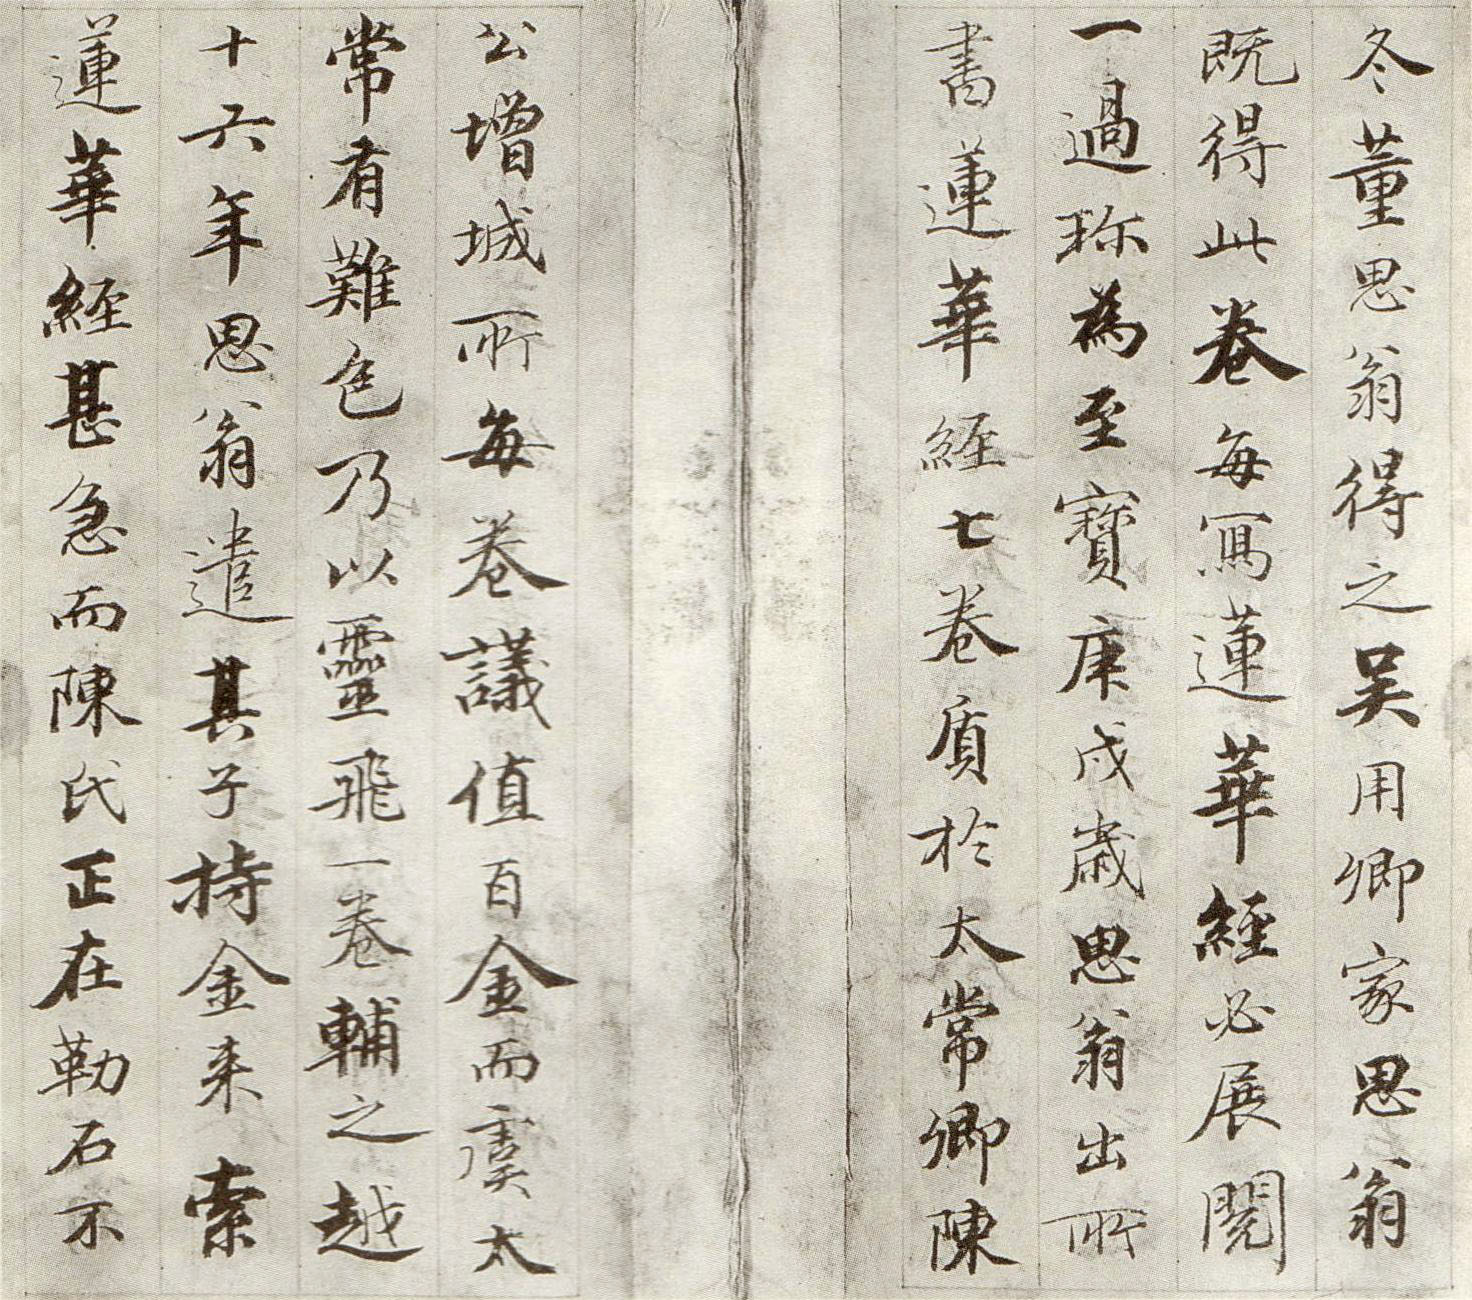 冬董思翁得之吴用卿家思翁
既得此卷每冩蓮華經必展閱
一過珎為至寶庚戌歲思翁出所
書蓮華經七卷質於太常卿陳
公增城所每卷議值百金而虞太
常有難色乃以靈飛一卷輔之越
十六年思翁遣其子持金来索
蓮華經甚急而陳氏正在勒石不